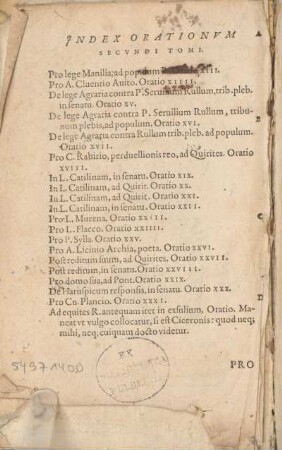 INDEX ORATIONVM
SECVNDI TOMI.
Pro lege Manilia, ad populum
Pro A. Cluentio Auito. Oratio XIIII.
De lege Agraria contra P. Seruilium Rullum, trib. pleb.
in senatu. Oratio XV.
De lege Agraria contra P. Seruilium Rullum, tribu-
num plebis, ad populum. Oratio XVI.
De lege Agraria contra Rullum trib. pleb. ad populum.
Oratio XVII.
Pro C. Rabirio, perduellionis reo, ad Quirites. Oratio
XVIII.
In L. Catilinam, in senatu. Oratio XIX.
In L. Catilinam, ad Quirit. Oratio XX.
In L. Catilinam, ad Quirit. Oratio XXI.
In L. Catilinam, in senatu. Oratio XXII.
Pro L. Murena. Oratio XXIII.
Pro L. Flacco. Oratio XXIIII.
Pro P. Sylla. Oratio XXV.
Pro A. Licinio Archia, poeta. Oratio XXVI.
Post reditum suum, ad Quirites. Oratio XXVII.
Post reditum, in senatu. Oratio XXVIII.
Pro domo sua, ad Pont. Oratio XXIX.
De Haruspicum responsis, in senatu. Oratio XXX.
Pro Cn. Plancio. Oratio XXXI.
Ad equites R. antequam iret in exsilium, Oratio. Ma-
neat vt vulgo collocatur, si est Ciceronis: quod neq;
mihi, neq; cuiquam docto videtur.
PRO
EX